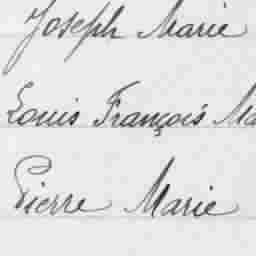 Joseph Marie
Louis François Ma
Pierre Marie